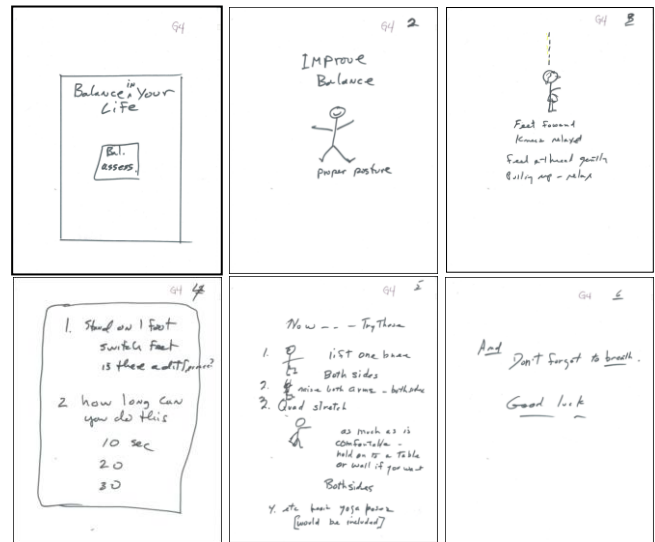 G4
Balance in Your
Life
Bal.
assess.
G4 2
Improve
Balance
proper posture
G4 3
Feet forward
Knees relaxed
Feel a thread gently
Pulling up - relax
G4 4
1. Stand on 1 foot
switch feet
is there a difference?
2 how long can
you do this
10 sec
20
30
G4 5
Now - - - Try These
1. list one knee
Both sides
2. raise both arms - both sides
3. Quad stretch
as much as is
comfortable -
hold on to a table
or wall if you want
Both sides
4. etc basic yoga poses
[would be included]
G4 6
And
Don't forget to breath.
Good luck